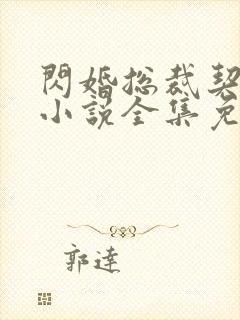 閃婚总裁契
小說全集免
郭達